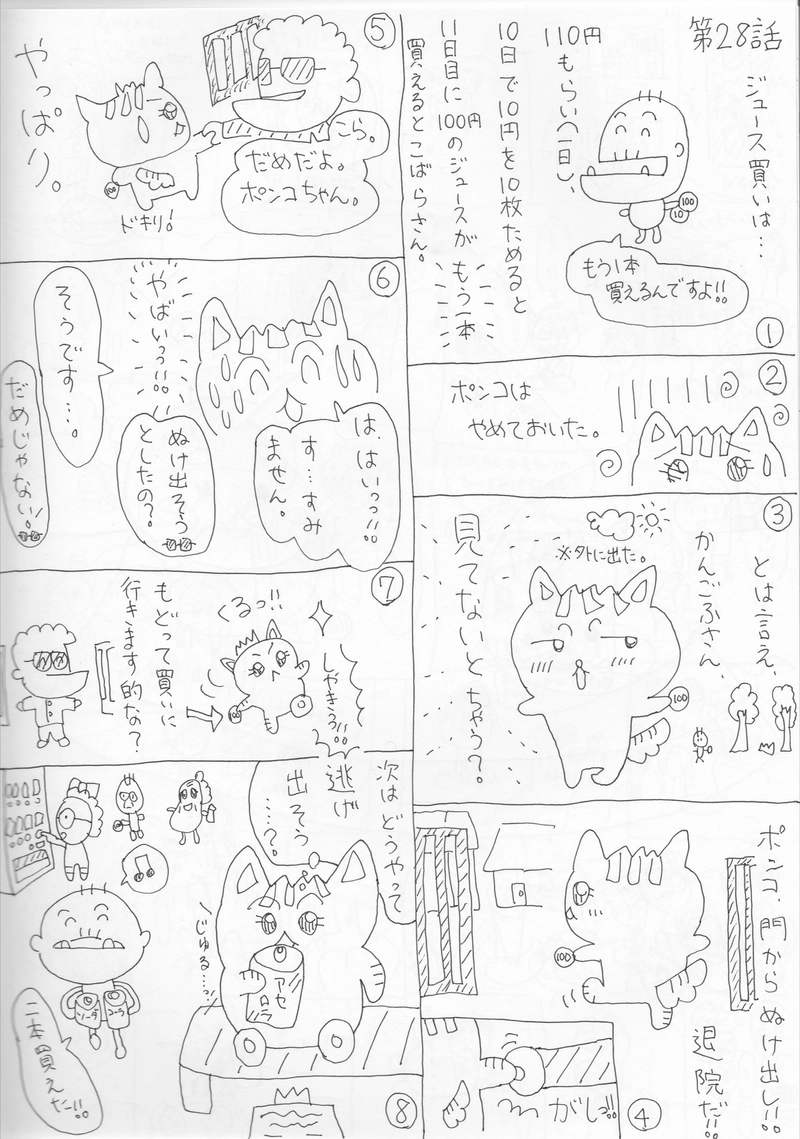 第28話
ジュース買いは…
110円
もらい(一日)、
10日で10円を10枚ためると
11日目に100円のジュースがもう一本
買えるとこばらさん。
100
10
もう1本
買えるんですよ!!
①
②
ポンコは
やめておいた。
③
とは言え、
かんごふさん、
※外に出た。
見てないとちゃう?
100
④
ポンコ、門からぬけ出し!!
退院だ!!
100
がしっ!!
⑤
こら。
だめだよ。
ポンコちゃん。
100
ドキリ!
やっぱり。
⑥
は、はいっっ!!
す…すみ
ません。
やばいっっ!!
ぬけ出そう
としたの?
そうです…。
だめじゃない!
⑦
しゃきーん!!
くるっ!!
100
もどって買いに
行きます的な?
⑧
次はどうやって
逃げ
出そう
……?
じゅる…っ
アセ
ロラ
ソーダ
コーラ
二本買えた!!